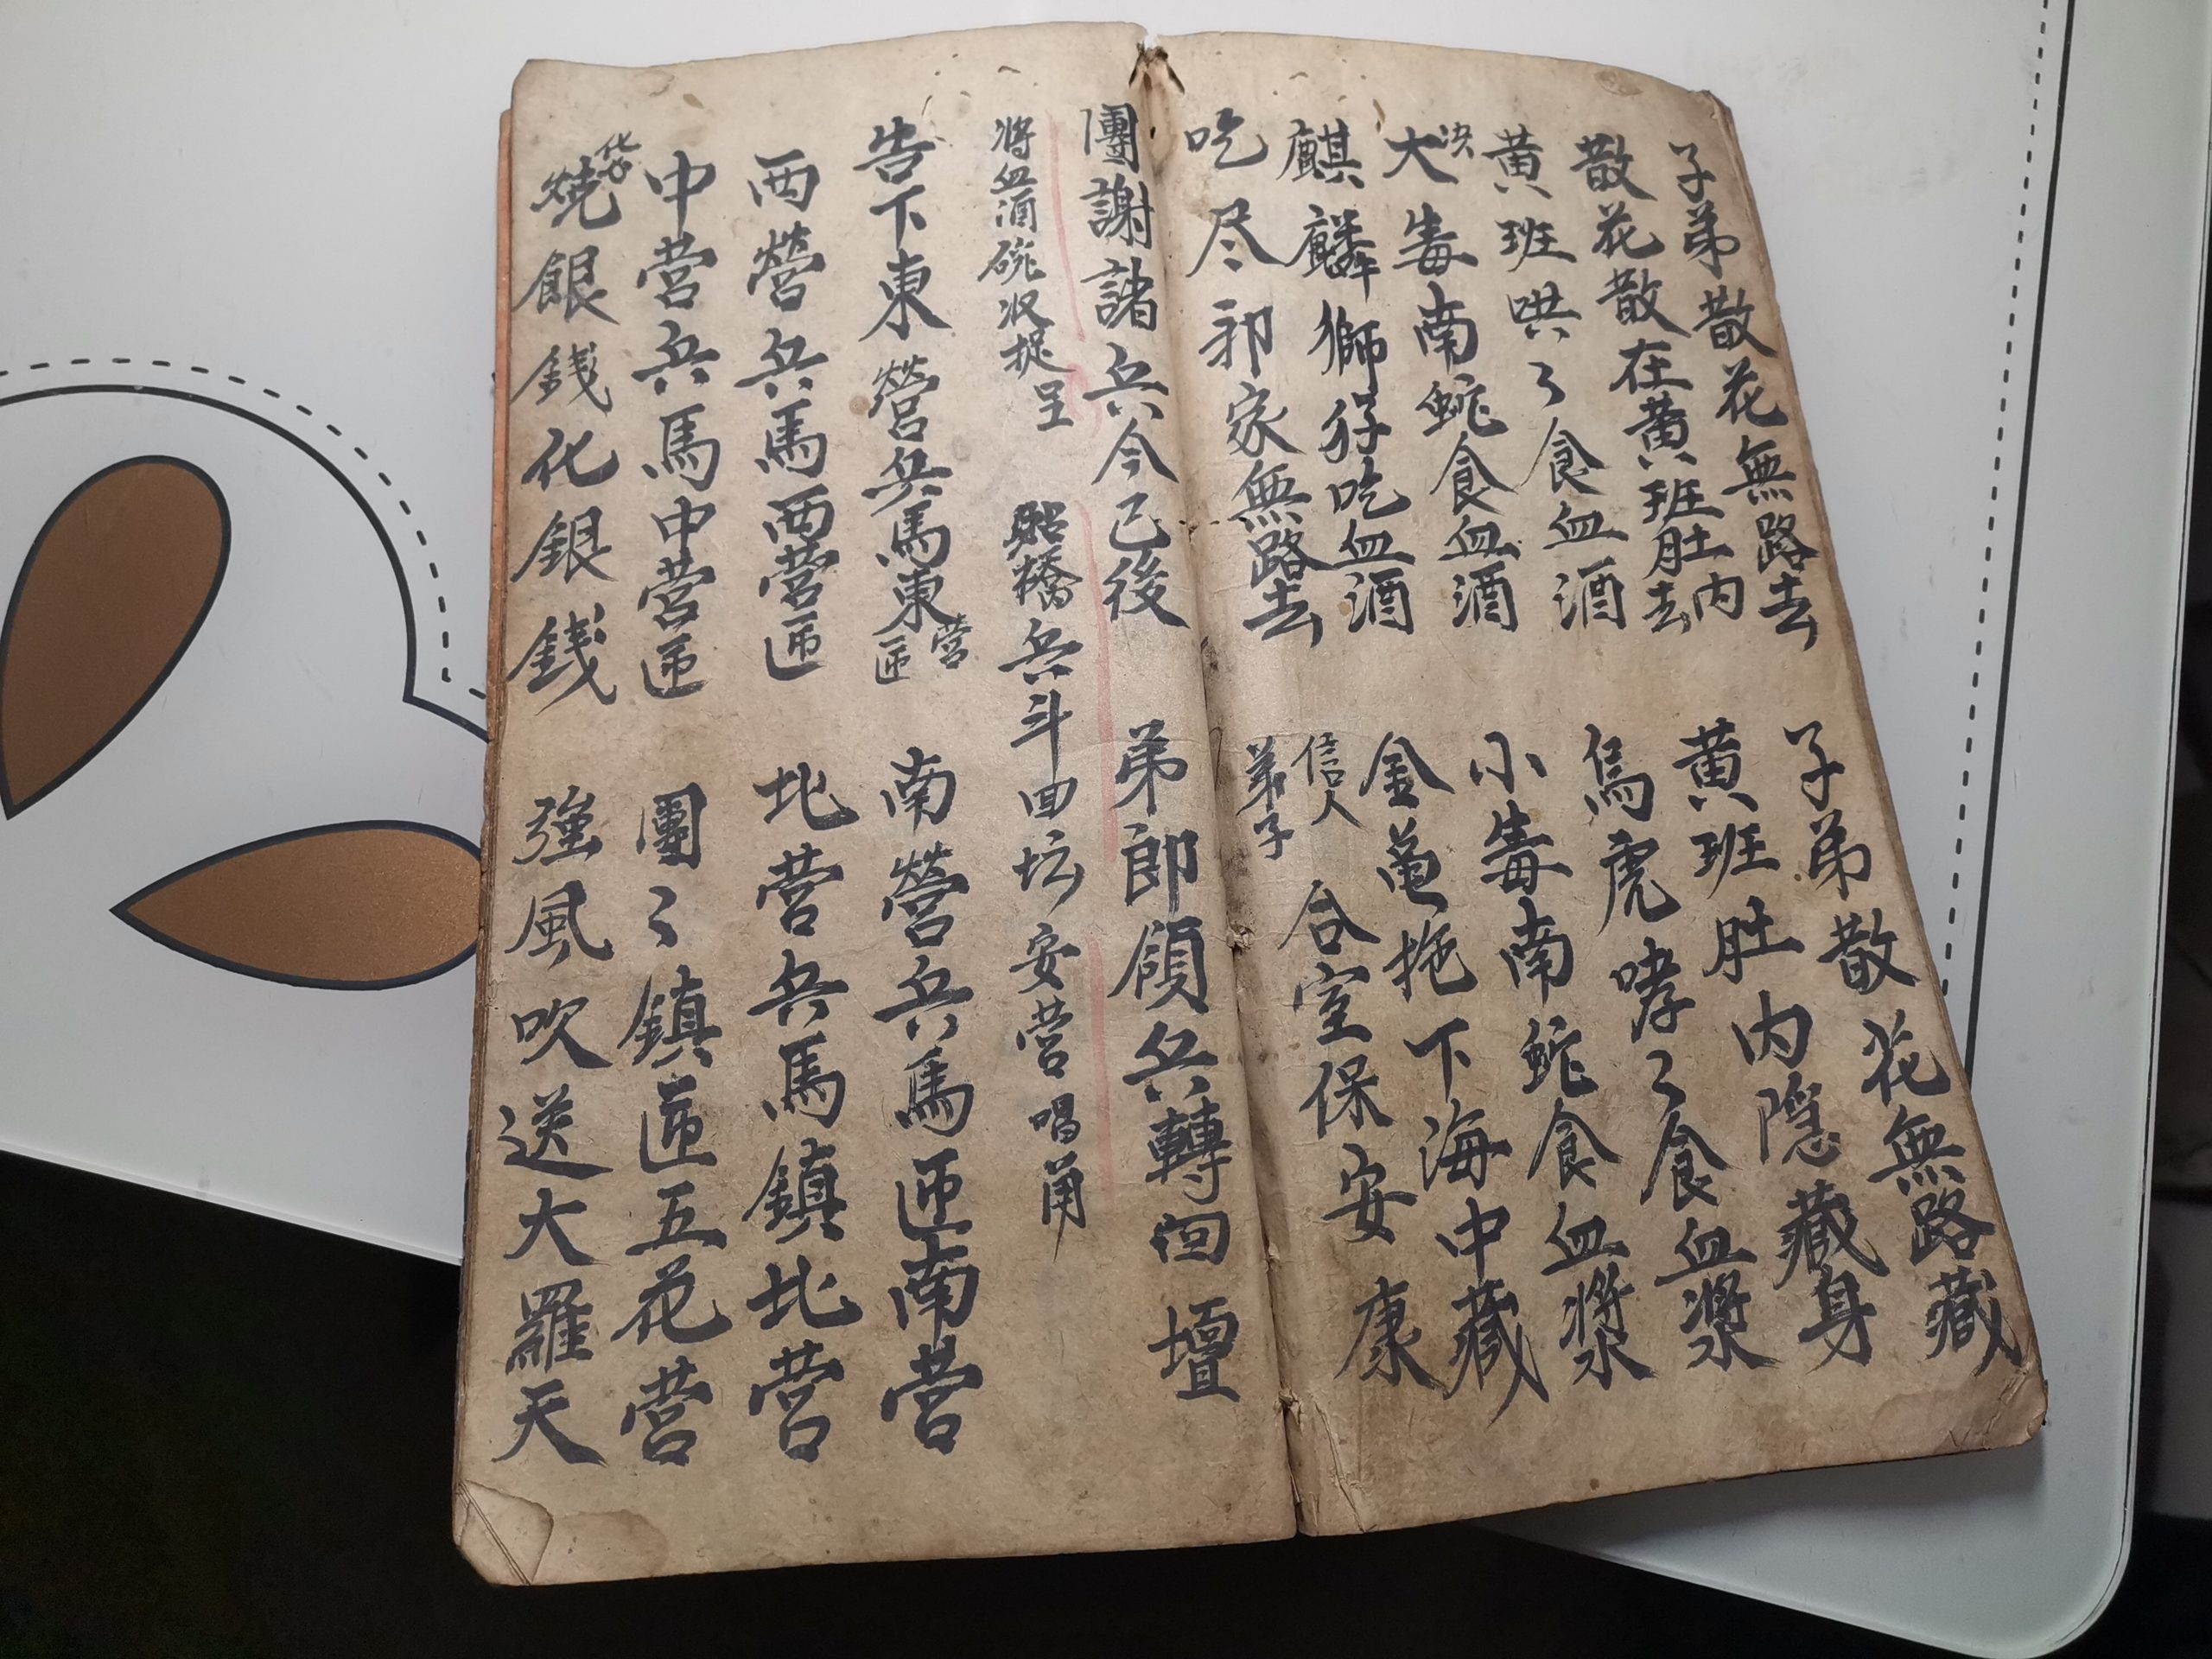 子弟散花無路去 子弟散花無路藏
散花散在黄班肚内去 黄班肚内隱藏身
黄班哄々食血酒 烏虎哮々食血漿
大毒南蛇食血酒 小毒南蛇食血漿
麒麟獅仔吃血酒 金亀拖下海中藏
吃尽邪家無路去 信人弟子合室保安康
團謝諸兵今已後 弟郎領兵轉回壇
將血酒碗収捉呈 兵斗回坛安营唱
告下東營兵馬東营匝 南營兵馬匝南营
西營兵馬西营匝 北营兵馬鎮北营
中营兵馬中营匝 團々鎮匝五花营
燒銀錢化銀錢 強風吹送大羅天